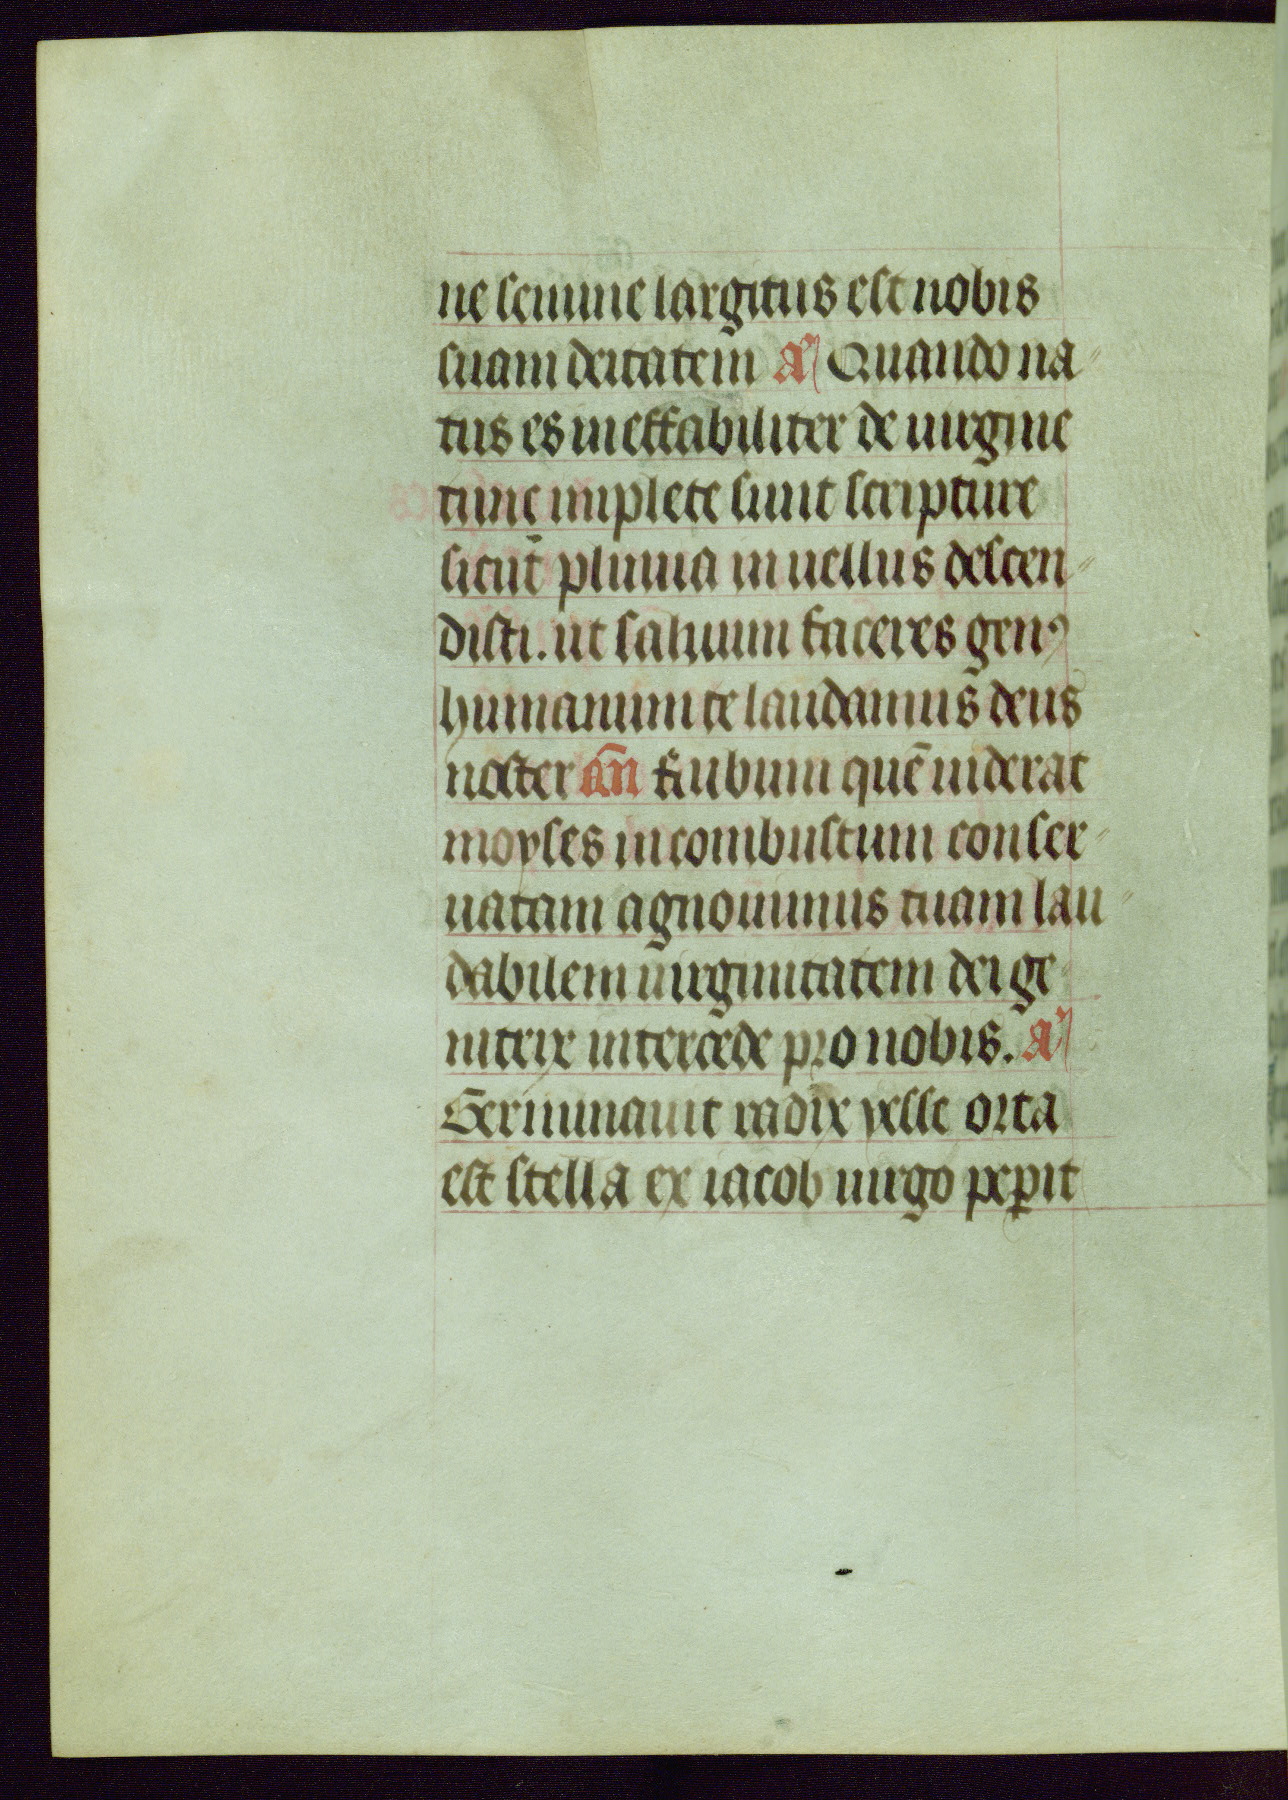 ne semine largitus est nobis
suam deitatem a᷎ Quando na
tus es ineffabiliter de uirgine
tunc implete sunt scripture
sicut pluuia in uellus descen
disti. ut saluum faceres genꝰ
humanum te laudamus deus
noster an̄ Rubum quē uiderat
moyses incombustum conser
uatam agnouimus tuam lau
dabilem uirginitatem dei ge
nitrix intercede pro nobis. a᷎
Germinauit radix yesse orta
est stella ex iacob uirgo peꝑit